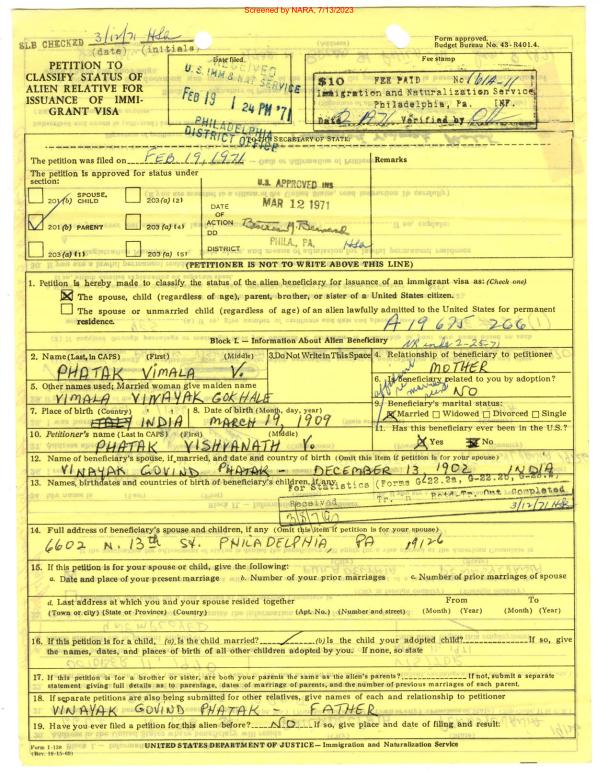 Screened by NARA, 7/13/2023
SLB CHECKED 3/12/71 Hsa
(date) (initials)
Form approved.
Budget Bureau No. 43-R401.4.
PETITION TO
CLASSIFY STATUS OF
ALIEN RELATIVE FOR
ISSUANCE OF IMMI-
GRANT VISA
Date filed
RECEIVED
U.S. IMM & NAT SERVICE
FEB 19 1 24 PM '71
PHILADELPHIA
DISTRICT OFFICE
Fee stamp
$10 FEE PAID No 161A-11
Immigration and Naturalization Service
Philadelphia, Pa. INF.
Date Verified by
TO THE SECRETARY OF STATE:
The petition was filed on FEB. 19, 1971
Remarks
The petition is approved for status under
section:
201(b) SPOUSE, CHILD
203(a)(2)
201(b) PARENT
203(a)(4)
203(a)(1)
203(a)(5)
U.S. APPROVED INS
MAR 12 1971
DATE
OF
ACTION
DD
DISTRICT
PHILA., PA. Hsa
(PETITIONER IS NOT TO WRITE ABOVE THIS LINE)
1. Petition is hereby made to classify the status of the alien beneficiary for issuance of an immigrant visa as: (Check one)
X The spouse, child (regardless of age), parent, brother, or sister of a United States citizen.
The spouse or unmarried child (regardless of age) of an alien lawfully admitted to the United States for permanent
residence.
A 19 675 266
Block I. - Information About Alien Beneficiary
2-25-71
2. Name (Last, in CAPS) (First) (Middle)
PHATAK VIMALA V.
3. Do Not Write in This Space
4. Relationship of beneficiary to petitioner
MOTHER
5. Other names used; Married woman give maiden name
VIMALA VINAYAK GOKHALE
6. Is beneficiary related to you by adoption?
NO
7. Place of birth (Country)
INDIA
8. Date of birth (Month, day, year)
MARCH 19, 1909
9. Beneficiary's marital status:
Married Widowed Divorced Single
10. Petitioner's name (Last in CAPS) (First) (Middle)
PHATAK VISHVANATH V.
11. Has this beneficiary ever been in the U.S.?
Yes No
12. Name of beneficiary's spouse, if married, and date and country of birth (Omit this item if petition is for your spouse)
VINAYAK GOVIND PHATAK - DECEMBER 13, 1902 INDIA
13. Names, birthdates and countries of birth of beneficiary's children, if any
For Statistics (Forms G-22.2a, G-22.20,
Received Tr. Out Completed
3/12/71 Hsa
14. Full address of beneficiary's spouse and children, if any (Omit this item if petition is for your spouse)
6602 N. 13th St. PHILADELPHIA, PA 19126
15. If this petition is for your spouse or child, give the following:
a. Date and place of your present marriage b. Number of your prior marriages c. Number of prior marriages of spouse
d. Last address at which you and your spouse resided together From To
(Town or city) (State or Province) (Country) (Apt. No.) (Number and street) (Month) (Year) (Month) (Year)
16. If this petition is for a child, (a) Is the child married? (b) Is the child your adopted child? If so, give
the names, dates, and places of birth of all other children adopted by you. If none, so state
17. If this petition is for a brother or sister, are both your parents the same as the alien's parents? If not, submit a separate
statement giving full details as to parentage, dates of marriage of parents, and the number of previous marriages of each parent.
18. If separate petitions are also being submitted for other relatives, give names of each and relationship to petitioner
VINAYAK GOVIND PHATAK - FATHER
19. Have you ever filed a petition for this alien before? NO If so, give place and date of filing and result:
Form I-130
(Rev. 10-15-69)
UNITED STATES DEPARTMENT OF JUSTICE - Immigration and Naturalization Service